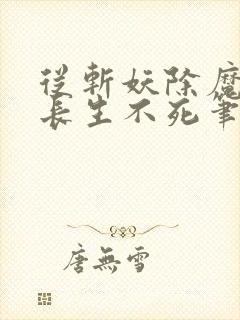 從斬妖除魔
長生不死筆
唐無雪